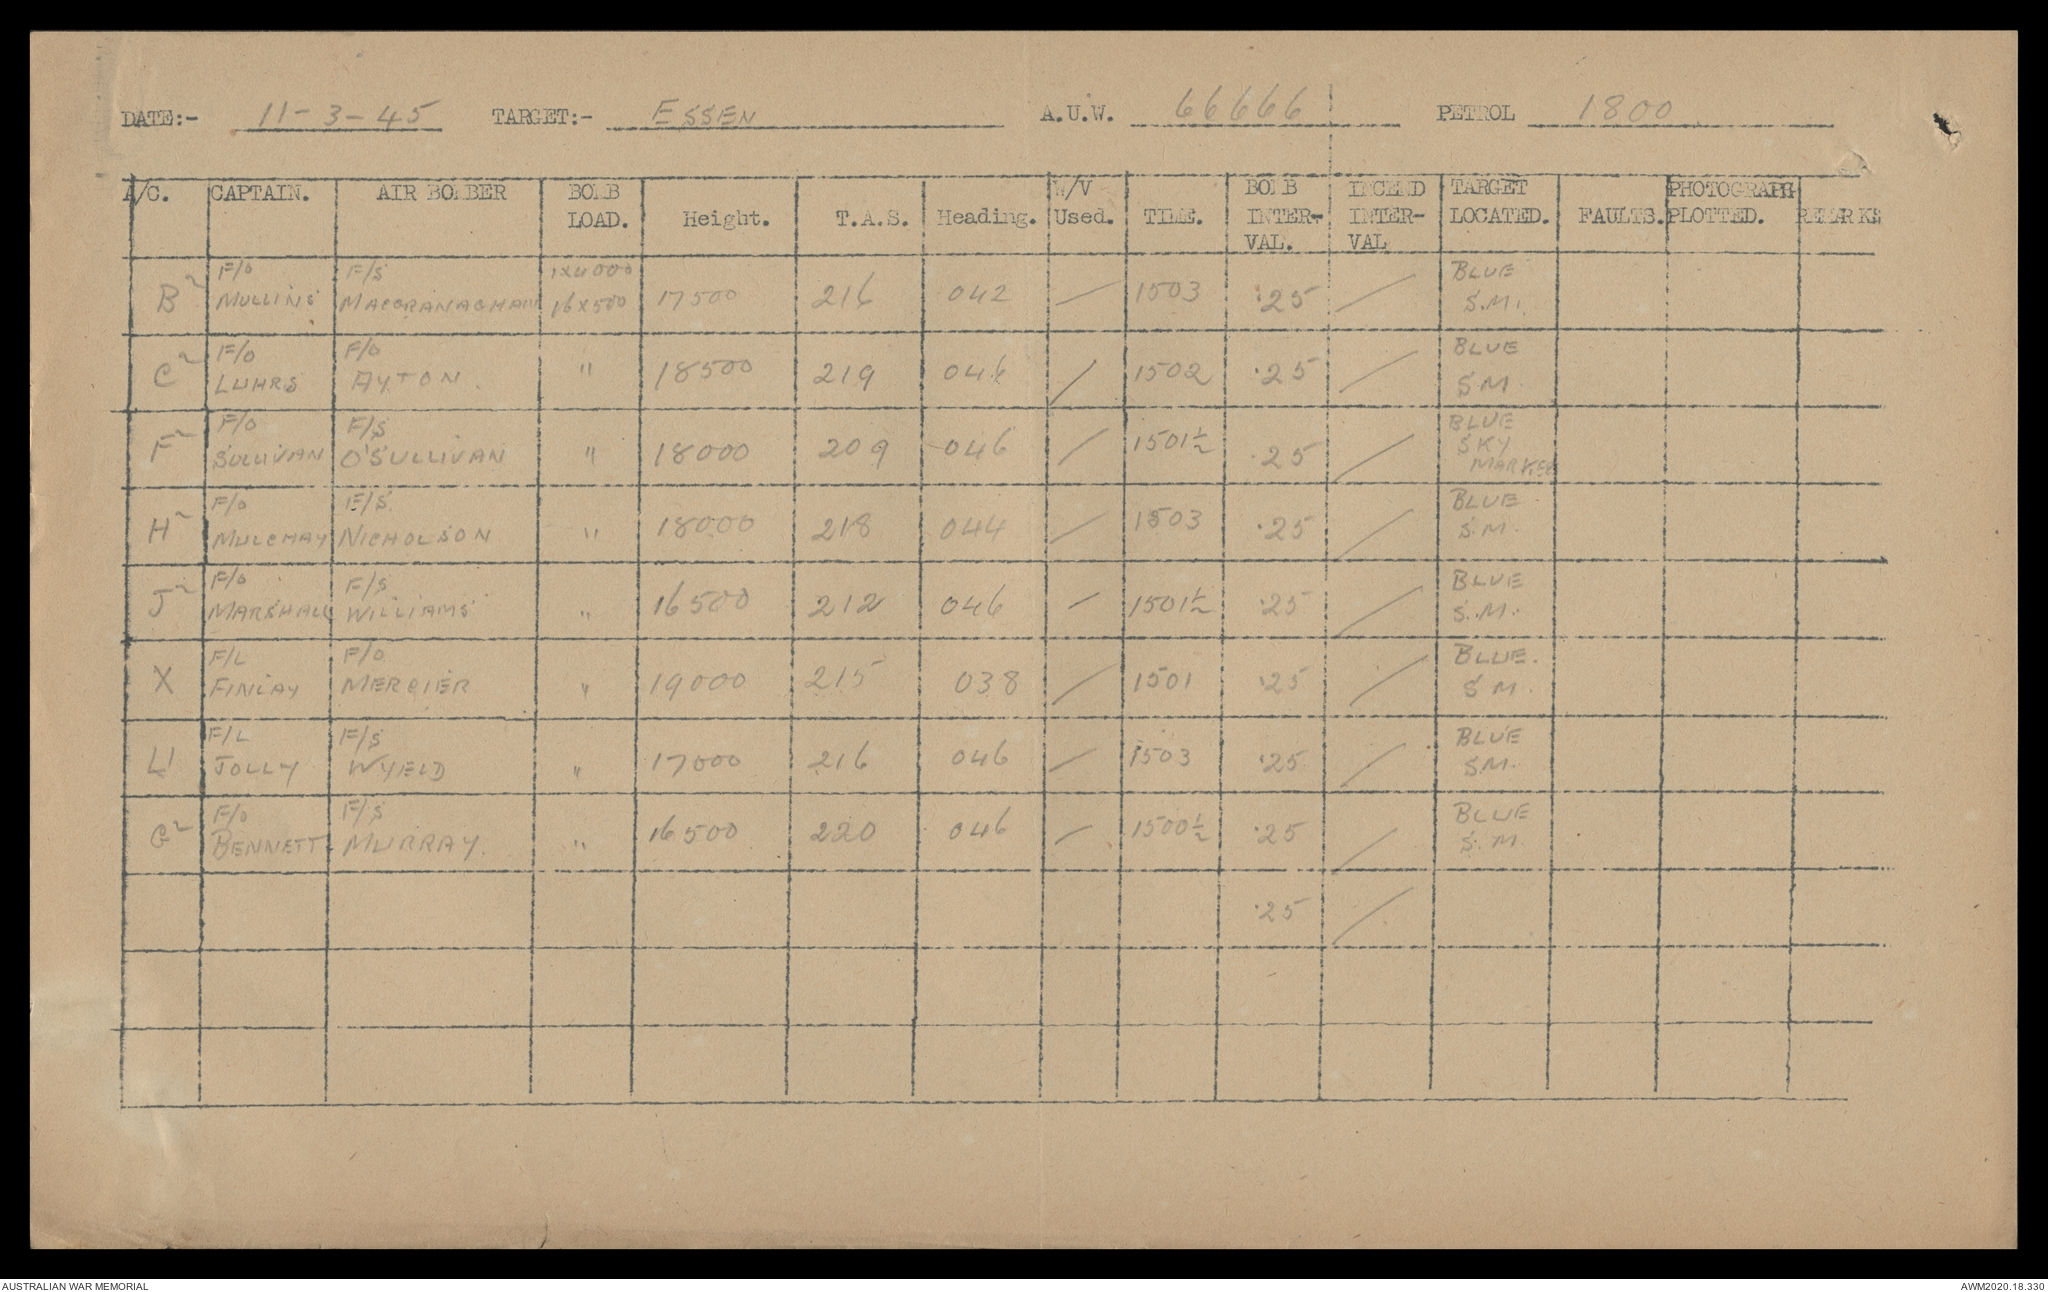 DATE:- 11-3-45 TARGET:- ESSEN A.U.W. 66666 PETROL 1800
A/C. CAPTAIN. AIR BOMBER BOMB LOAD. Height. T.A.S. Heading. W/V Used. TIME. BOMB INTER-VAL. INCEND INTER-VAL TARGET LOCATED. FAULTS. PHOTOGRAPH PLOTTED. REMARKS
B² F/O MULLINS F/S MACGRANAGHAN 1x4000 16x500 17500 216 042 / 1503 .25 / BLUE S.M.
C² F/O LUHRS F/O AYTON. " 18500 219 046 / 1502 .25 / BLUE S.M
F² F/O SULLIVAN F/S O'SULLIVAN " 18000 209 046 / 1501½ .25 / BLUE SKY MARKER
H² F/O MULCHAY F/S NICHOLSON " 18000 218 044 / 1503 .25 / BLUE S.M.
J² F/O MARSHALL F/S WILLIAMS " 16500 212 046 / 1501½ .25 / BLUE S.M.
X F/L FINLAY F/O MERCIER " 19000 215 038 / 1501 .25 / BLUE. S M.
F/L JOLLY F/S WYELD " 17000 216 046 / 1503 .25 / BLUE S.M.
G² F/O BENNETT F/S MURRAY. " 16500 220 046 / 1500½ .25 / BLUE S. M
.25 /
AUSTRALIAN WAR MEMORIAL AWM2020.18.330